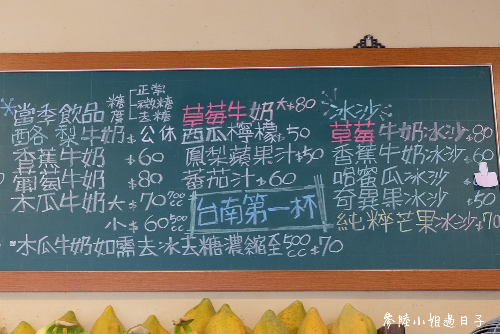 當季飲品 糖度 正常 微糖 去糖
酪梨牛奶$公休
香蕉牛奶 $60
葡萄牛奶 $80
木瓜牛奶大$70 700cc
小$60 500cc
*木瓜牛奶如需去冰去糖濃縮至500cc$70
草莓牛奶大$80
西瓜檸檬$50
鳳梨蘋果汁$50
蕃茄汁$60
台南第一杯
冰沙
草莓牛奶冰沙$80
香蕉牛奶冰沙$60
哈蜜瓜冰沙
奇異果冰沙 $50
純粹芒果冰沙$70
參陸小姐過日子